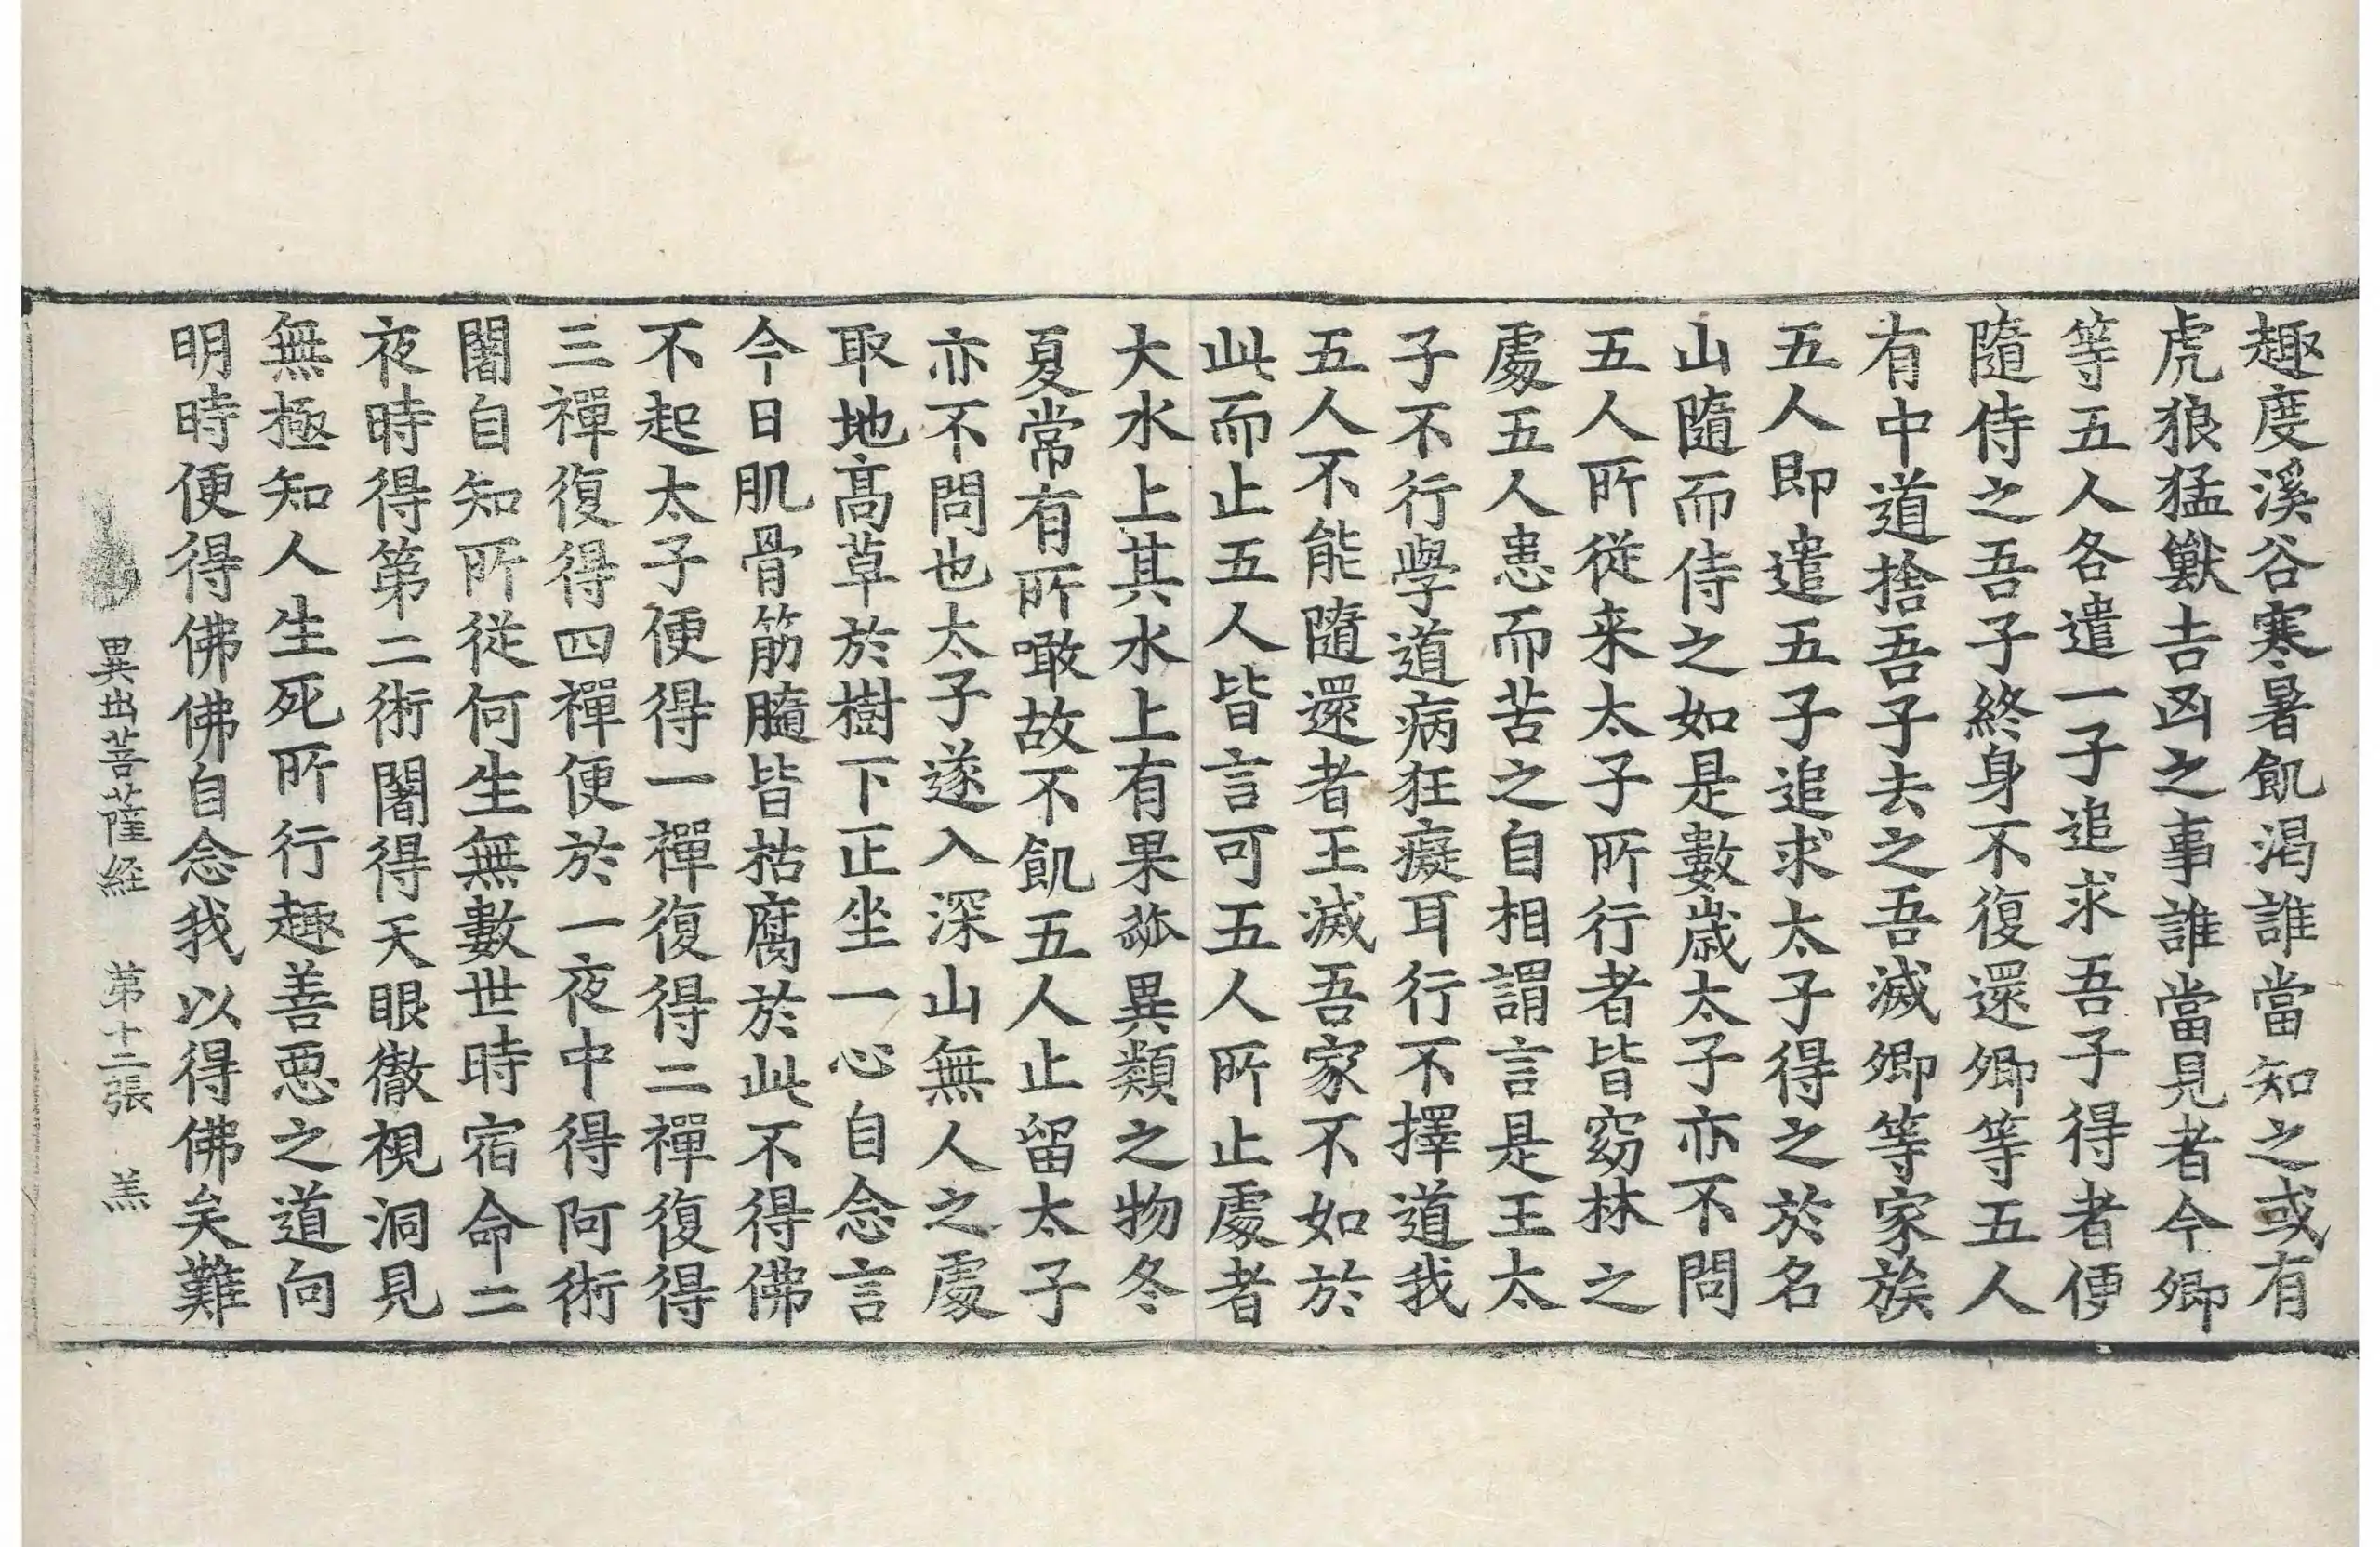 趣度溪谷寒暑飢渴誰當知之或有
虎狼猛獸吉凶之事誰當見者今卿
等五人各遣一子追求吾子得者便
隨侍之吾子終身不復還卿等五人
有中道捨吾子去之吾滅卿等家族
五人即遣五子追求太子得之於名
山隨而侍之如是數歲太子亦不問
五人所從来太子所行者皆窈林之
處五人患而苦之自相謂言是王太
子不行學道病狂癡耳行不擇道我
五人不能隨還者王滅吾家不如於
此而止五人皆言可五人所止處者
大水上其水上有果蓏異類之物冬
夏常有所噉故不飢五人止留太子
亦不問也太子遂入深山無人之處
取地高草於樹下正坐一心自念言
今日肌骨筋髓皆枯腐於此不得佛
不起太子便得一禪復得二禪復得
三禪復得四禪便於一夜中得阿術
闍自知所從何生無數世時宿命二
夜時得第二術闍得天眼徹視洞見
無極知人生死所行趣善惡之道向
明時便得佛佛自念我以得佛矣難
異出菩薩経 第十二張 羔